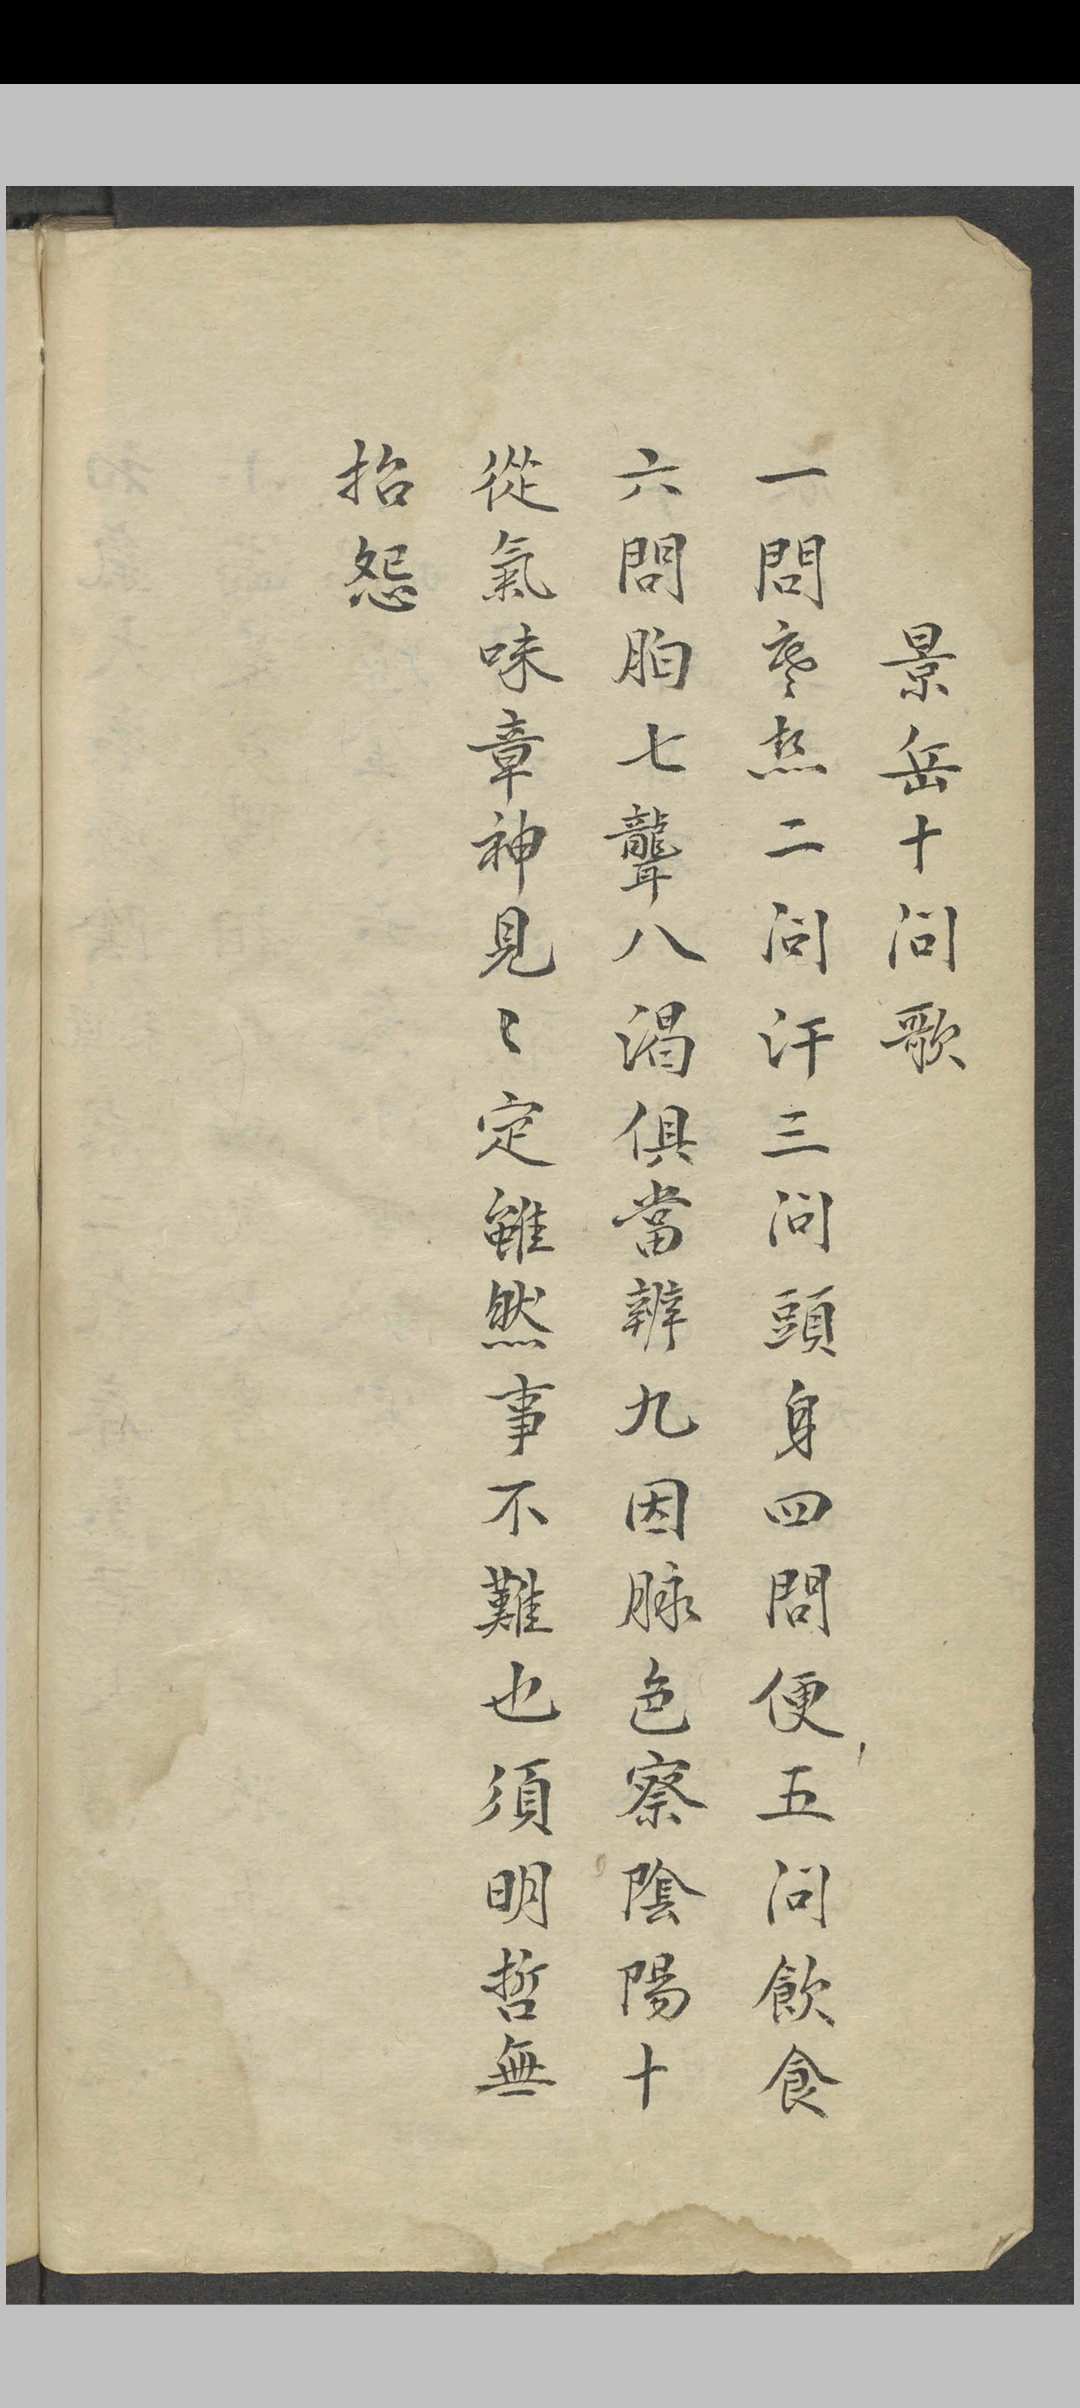 景岳十问歌
一問寒热二问汗三问頭身四問便五问飲食
六問胸七聾八渴俱當辨九因脉色察陰陽十
從氣味章神見〻定雖然事不難也須明哲無
招怨